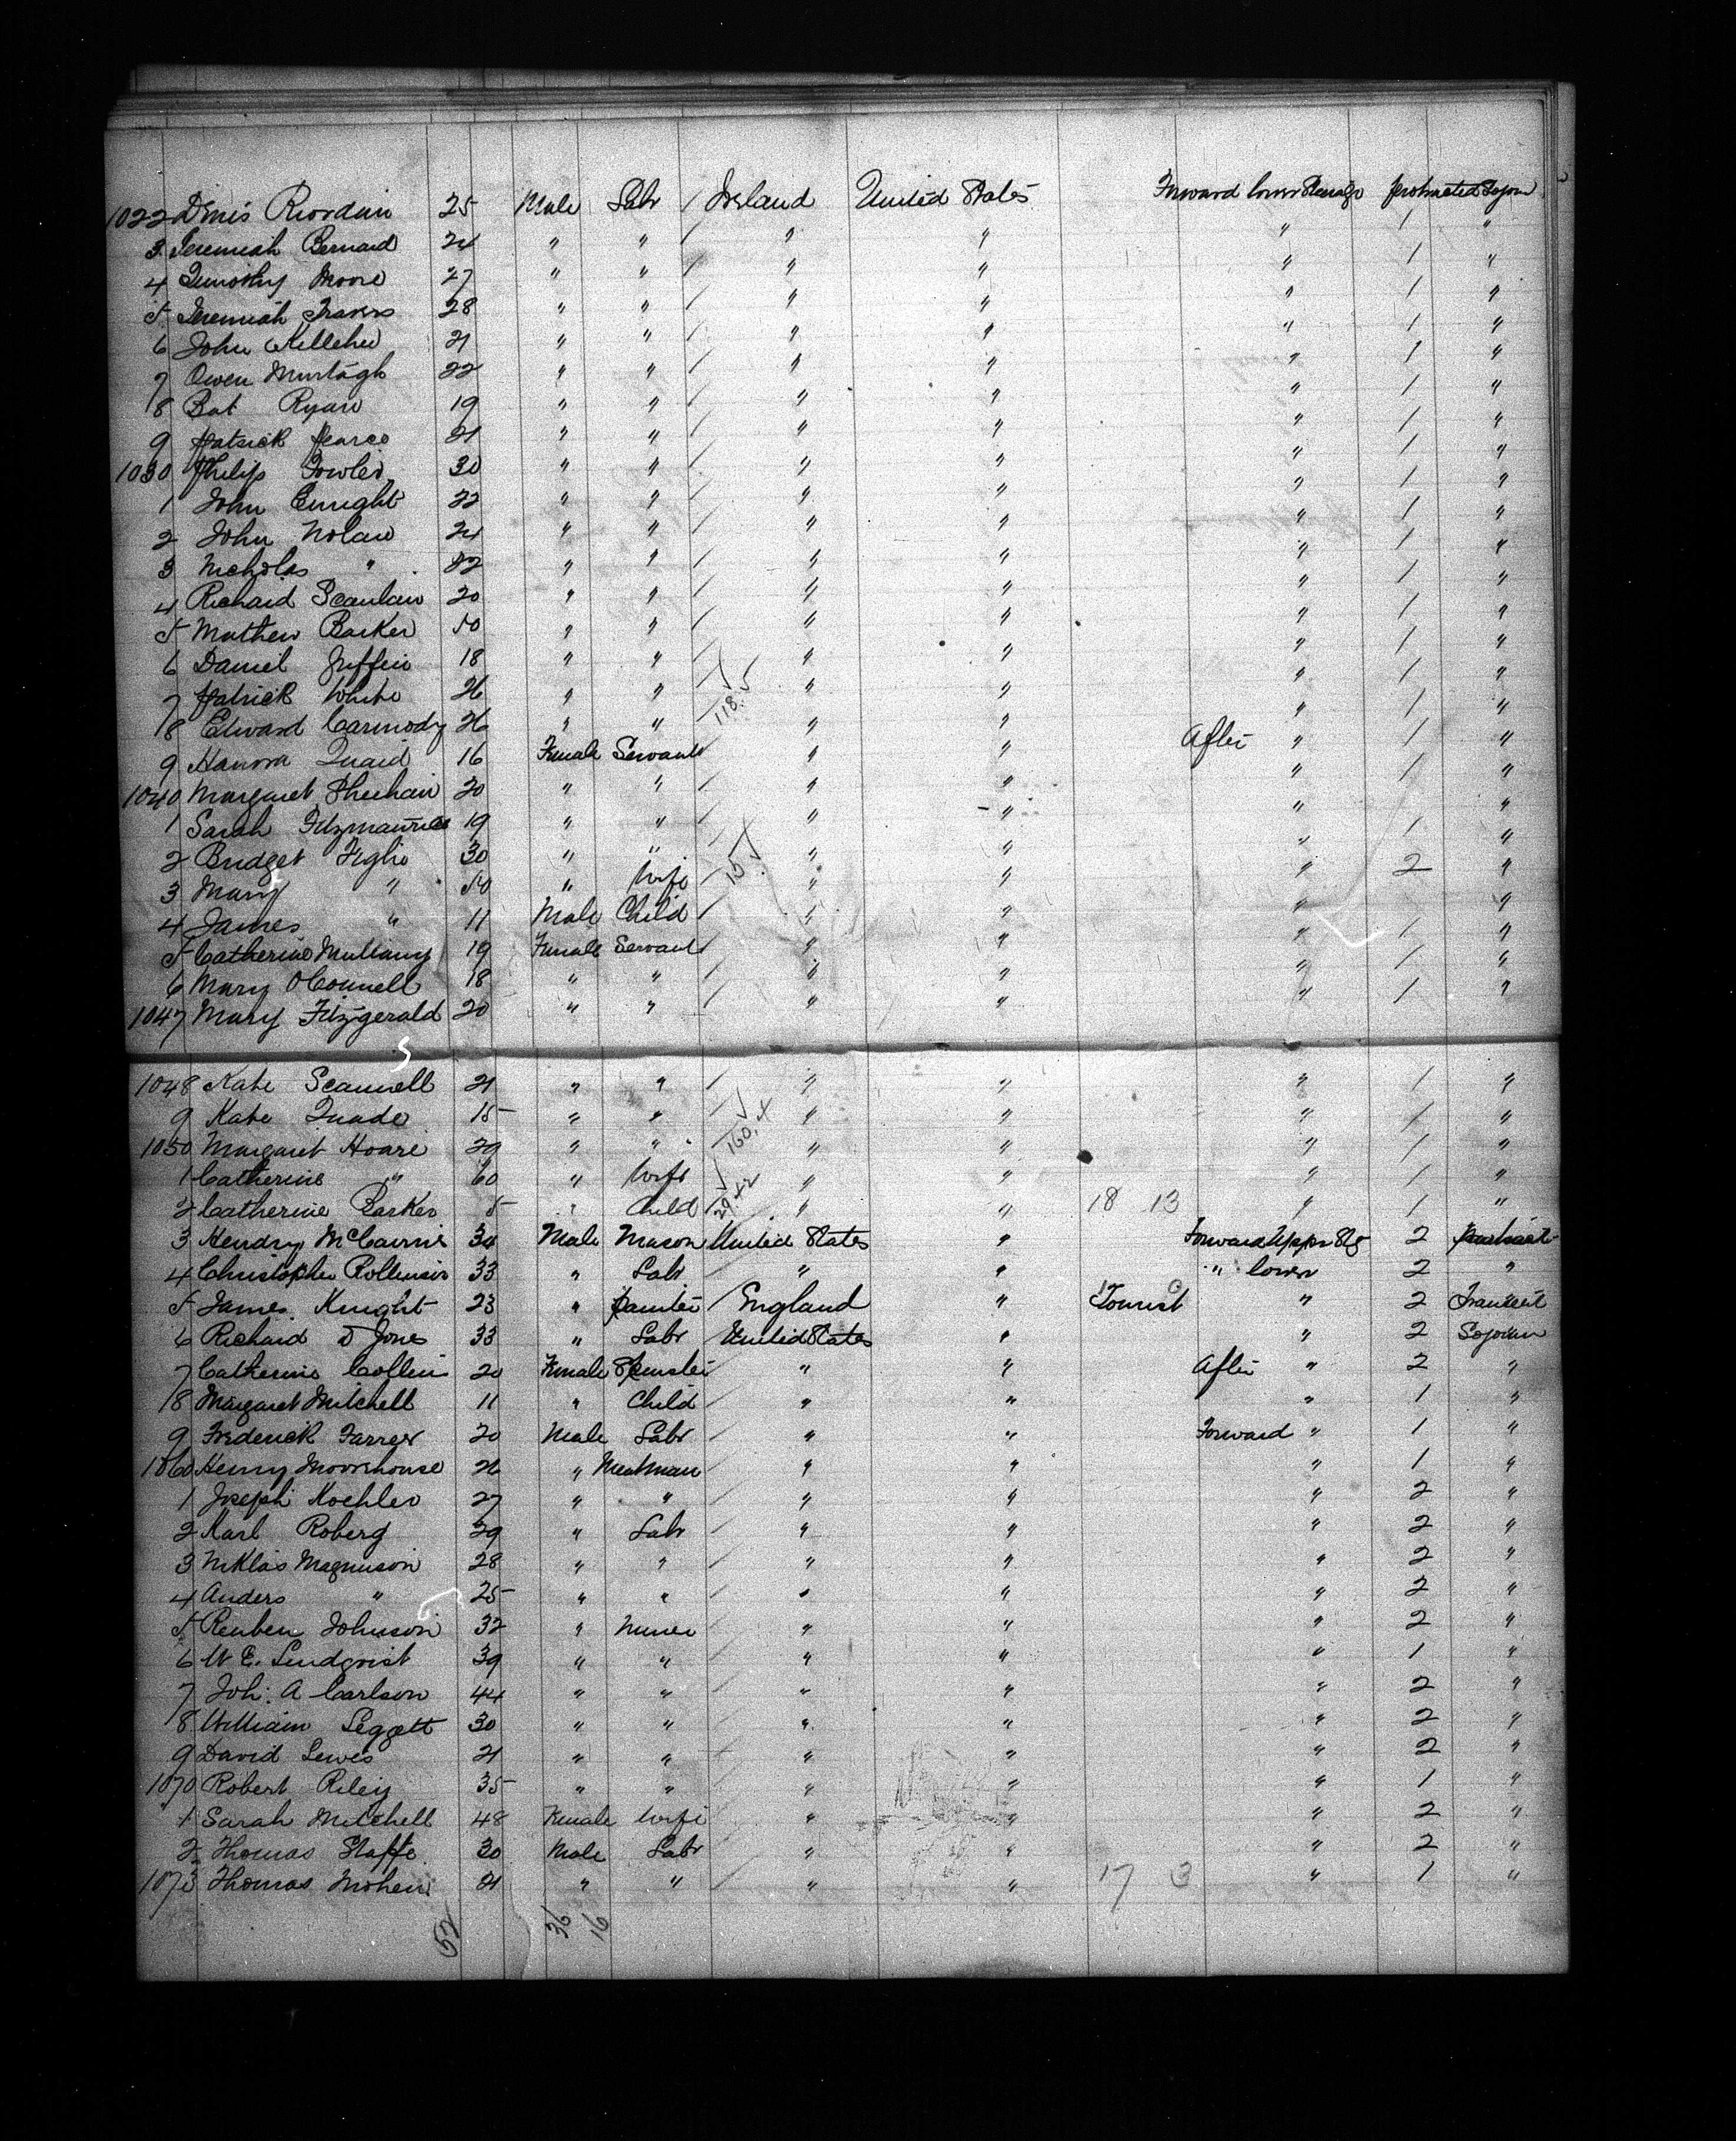 1022 Dinis Riordain 25 Male Labr / Ireland United States Forward lower Steerage / protracted Sojourn
3 Jeremiah Bernard 24 " " / " " " / "
4 Timothy Moore 27 " " / " " " / "
5 Jeremiah Travers 28 " " / " " " / "
6 John Kelleher 21 " " / " " " / "
7 Owen Murtagh 22 " " / " " " / "
8 Bat Ryan 19 " " / " " " / "
9 Patrick Pearce 21 " " / " " " / "
1030 Philip Fowler 30 " " / " " " / "
1 John Enright 22 " " / " " " / "
2 John Nolan 24 " " / " " " / "
3 Nicholas " 22 " " / " " " / "
4 Richard Scanlan 20 " " / " " " / "
5 Mathew Barker 50 " " / " " " / "
6 Daniel Griffin 18 " " / " " " / "
7 Patrick White 26 " " / " " " / "
8 Edward Carmody 26 " " / 118.5 " " " / "
9 Hanora Quaid 16 Female Servant / " " After " / "
1040 Margaret Sheehan 20 " " / " " " / "
1 Sarah Fitzmaurice 19 " " / " " " "
2 Bridget Fighe 30 " " / " " " / "
3 Mary " 50 " Wife / 15 " " " 2 "
4 James " 11 Male Child / " " " "
5 Catherine Mullany 19 Female Servant / " " " / "
6 Mary O'Connell 18 " " / " " " / "
1047 Mary Fitzgerald 20 " " / " " " / "
1048 Kate Scannell 21 " " / " " " / "
9 Kate Quade 15 " " / " " " / "
1050 Margaret Hoare 29 " " / 160.4 " " " / "
1 Catherine " 60 " Wife / " " " / "
2 Catherine Barker 5 " Child / 29 42 " " 18 13 " / "
3 Hendry McCairns 34 Male Mason / United States " Forward Upper Stg 2
4 Christopher Rollinson 33 " Labr / " " " lower 2 "
5 James Knight 23 " Painter / England " Tourist " 2 Transient
6 Richard D Jones 33 " Labr / United States " " 2 Sojourn
7 Catherine Collins 20 Female Spinster / " " After " 2 "
8 Margaret Mitchell 11 " Child / " " " 1 "
9 Frederick Farrer 20 Male Labr / " " Forward " 1 "
1060 Henry Moorehouse 26 " Meatman / " " " 1 "
1 Joseph Koehler 27 " " / " " " 2 "
2 Karl Roberg 29 " Labr / " " " 2 "
3 Niklas Magnuson 28 " " / " " " 2 "
4 Anders " 25 " " / " " " 2 "
5 Reuben Johnson 32 " Miner / " " " 2 "
6 W E. Lindqvist 39 " " / " " " 1 "
7 Joh: A Carlson 44 " " / " " " 2 "
8 William Leggett 30 " " / " " " 2 "
9 David Lewis 21 " " / " " " 2 "
1070 Robert Riley 35 " " / " " " 1 "
1 Sarah Mitchell 48 Female Wife / " " " 2 "
2 Thomas Staffe 30 Male Labr / " " " 2 "
1073 Thomas Mohen 21 " " / " " 17 3 " 1 "
52 36 16